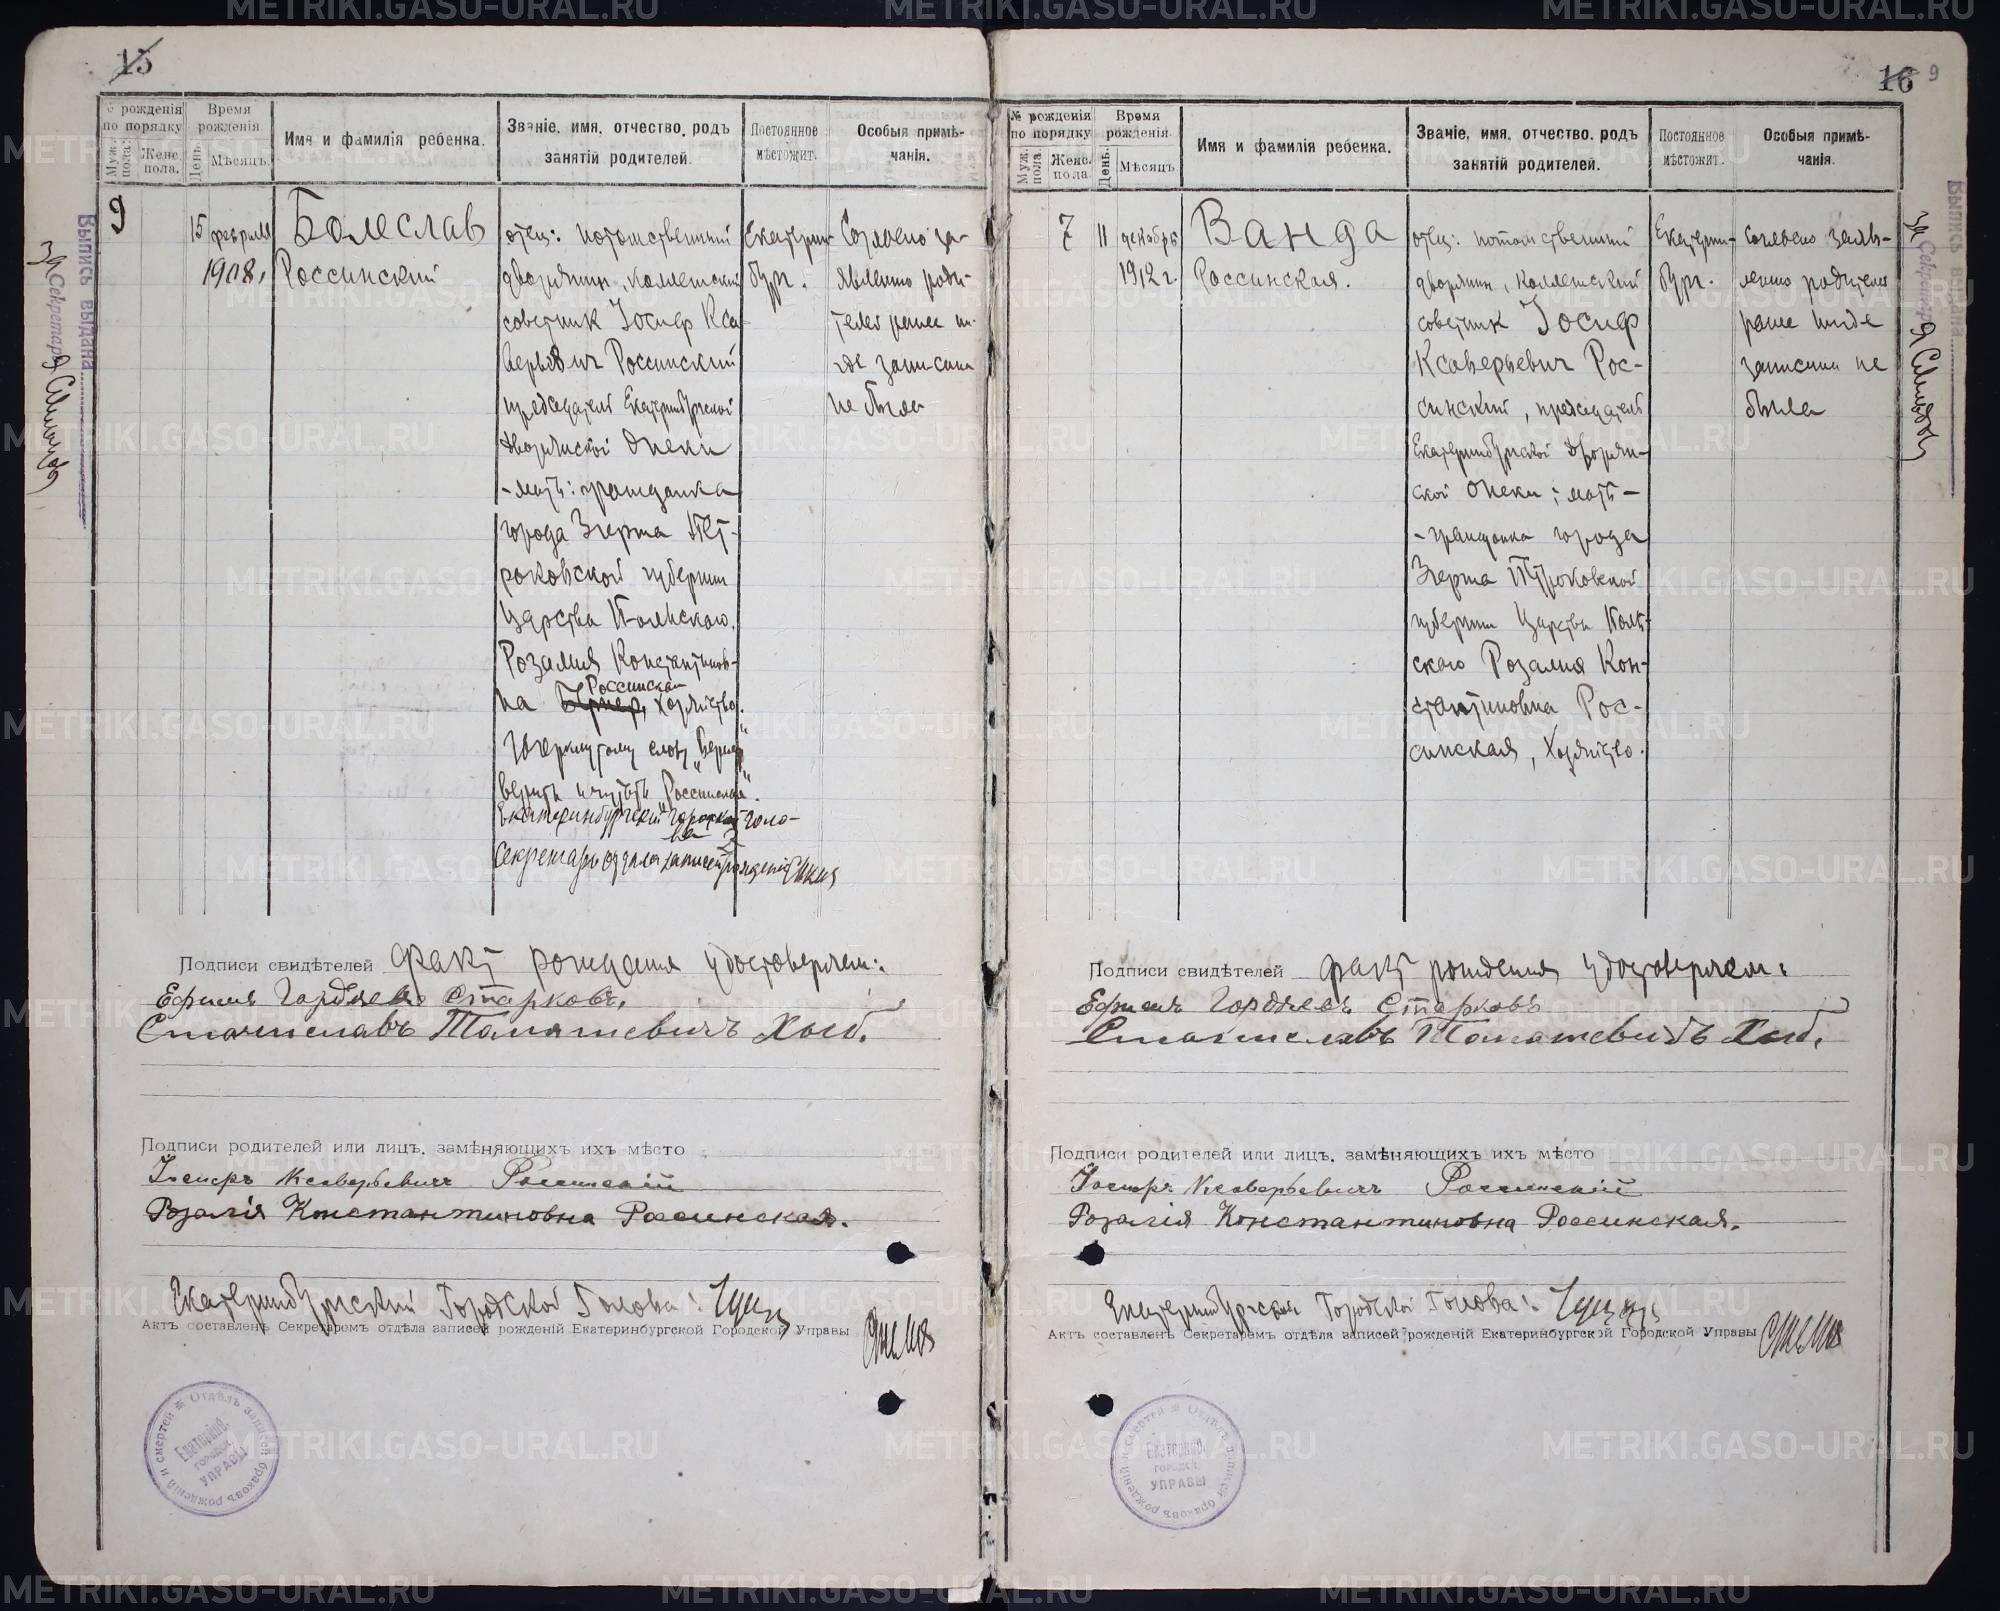 METRIKI.GASO-URAL.RU
15
№ рожденія по порядку
Муж. пола.
Женс. пола.
Время рожденія.
День.
Мѣсяцъ.
Имя и фамилія ребенка.
Званіе, имя, отчество, родъ занятій родителей.
Постоянное мѣстожит.
Особыя примѣчанія.
9
15 февраля
1908 г.
Болеслав
Россинский
отец: потомственный
дворянин, коллежский
советник Иосиф Кса-
верьевич Россинский
председатель Екатеринбургской
дворянской Опеки
- мать: гражданка
города Згержа Пет-
роковской губернии
Царства Польского.
Розалия Константинов-
Россинская
на Бернер, хозяйство.
Зачеркнутому слову "Бернер"
верить и читать "Россинская".
Екатеринбургский Городской Голо-
ва
Секретарь отдела записей рождений
Екатерин-
бург.
Согласно за-
явлению роди-
телей ранее ни-
где записан
не был
Выпись выдана
За Секретаря
Подписи свидѣтелей Факт рождения удостоверяем:
Ефимъ Гордѣевъ Старковъ.
Станиславъ Томашевичъ
Подписи родителей или лицъ, замѣняющихъ ихъ мѣсто
Іосифъ Ксаверьевичъ Россинскій
Розалія Константиновна Россинская.
Екатеринбургский Городской Голова:
Актъ составленъ Секретаремъ отдѣла записей рожденій Екатеринбургской Городской Управы
Отдѣлъ записей браковъ рожденій и смертей
Екатеринб.
ГОРОДСК.
УПРАВЫ
16
9
№ рожденія по порядку
Муж. пола.
Женс. пола
Время рожденія.
День.
Мѣсяцъ.
Имя и фамилія ребенка.
Званіе, имя, отчество, родъ занятій родителей.
Постоянное мѣстожит.
Особыя примѣчанія.
7
11 декабря
1912 г.
Ванда
Россинская.
отец: потомственный
дворянин, коллежский
советник Иосиф
Ксаверьевич Рос-
синский, председатель
Екатеринбургской Дворян-
ской Опеки; мать -
- гражданка города
Згержа Петроковской
губернии Царства Поль-
ского Розалия Кон-
стантиновна Рос-
синская, Хозяйство.
Екатерин-
бург.
Согласно заяв-
лению родителей
ранее нигде
записана не
была
Выпись выдана
За Секретаря
Подписи свидѣтелей факт рождения удостоверяем:
Ефимъ Гордѣевъ Старковъ
Станиславъ Томашевичъ
Подписи родителей или лицъ, замѣняющихъ ихъ мѣсто
Іосифъ Ксаверьевичъ Россинскій
Розалія Константиновна Россинская.
Екатеринбургский Городской Голова:
Актъ составленъ Секретаремъ отдѣла записей рожденій Екатеринбургской Городской Управы
Отдѣлъ записей браковъ рожденій и смертей
Екатеринб.
ГОРОДСК.
УПРАВЫ